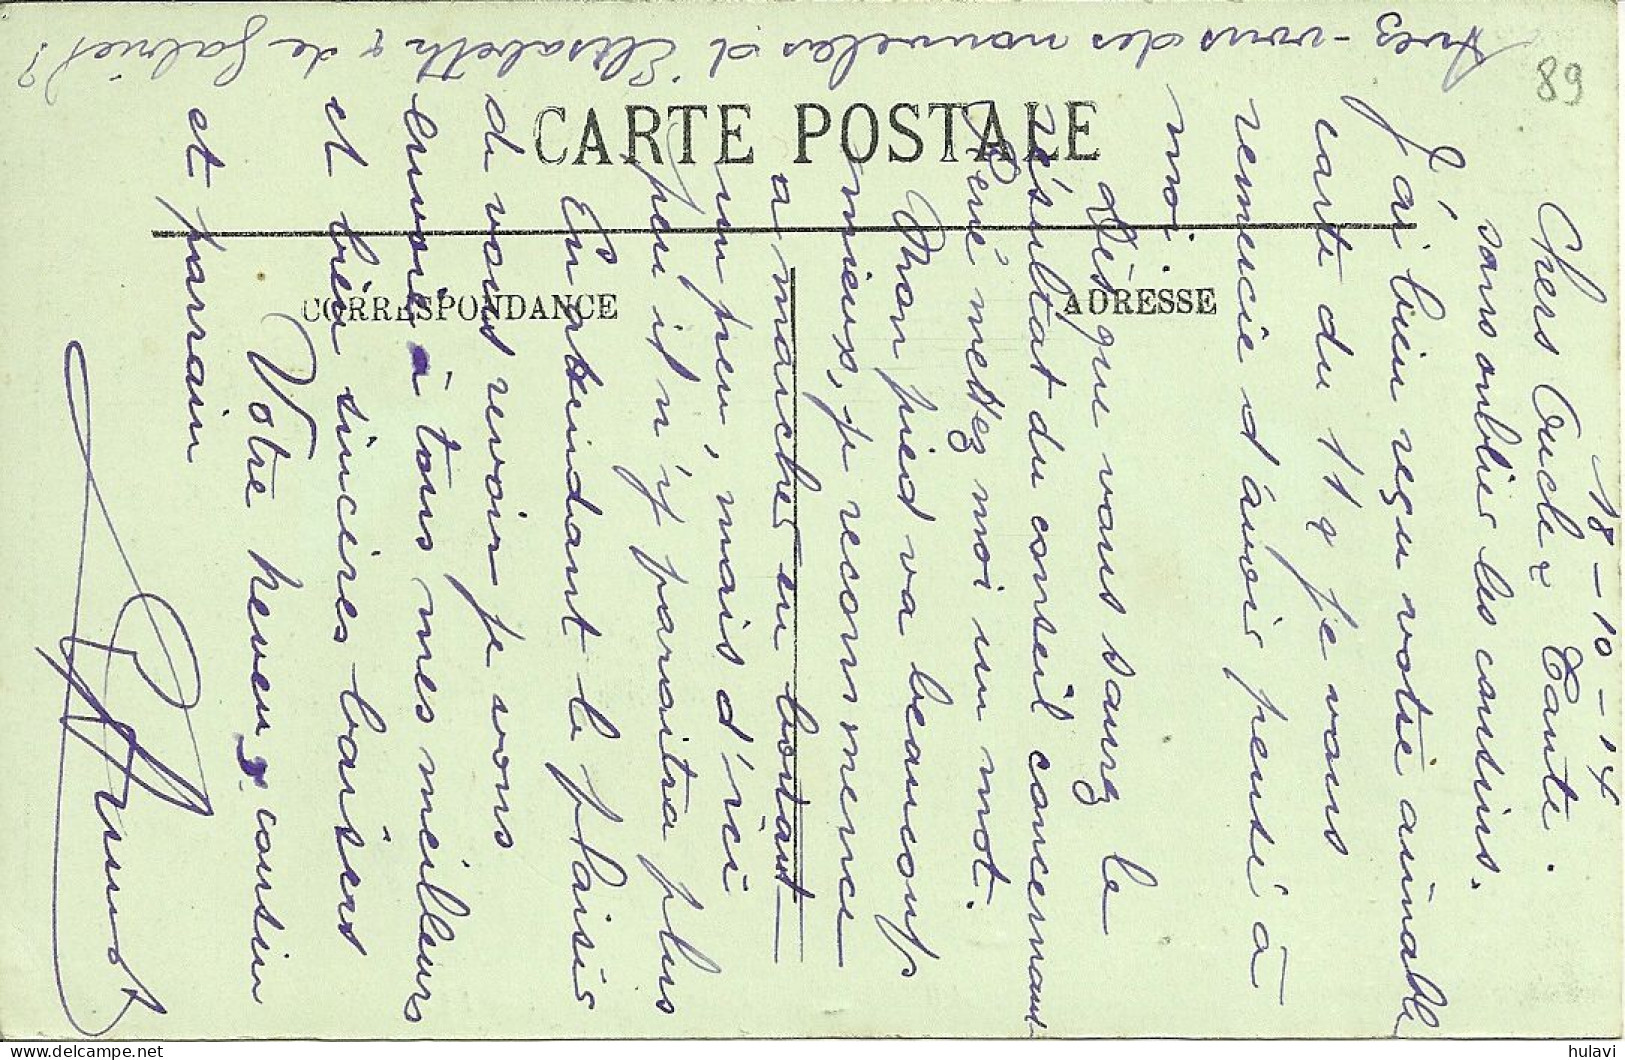 18-10-14
Chers Oncle & Tante.
sans oublier les cousins.
J'ai bien reçu votre aimable
carte du 11 & je vous
remercie d'avoir pensé à
moi.
Dès que vous saurez le
résultat du conseil concernant
René mettez moi un mot.
Mon pied va beaucoup
mieux, je recommence
a marcher en boitant
un peu, mais d'ici
peu il n'y paraitra plus
En attendant le plaisir
de vous revoir je vous
envoie à tous mes meilleurs
et bien sincères baisers
Votre neveu & cousin
et parrain
Avez-vous des nouvelles d'Elisabeth & de Gabriel?
CARTE POSTALE
CORRESPONDANCE
ADRESSE
89
hulavi